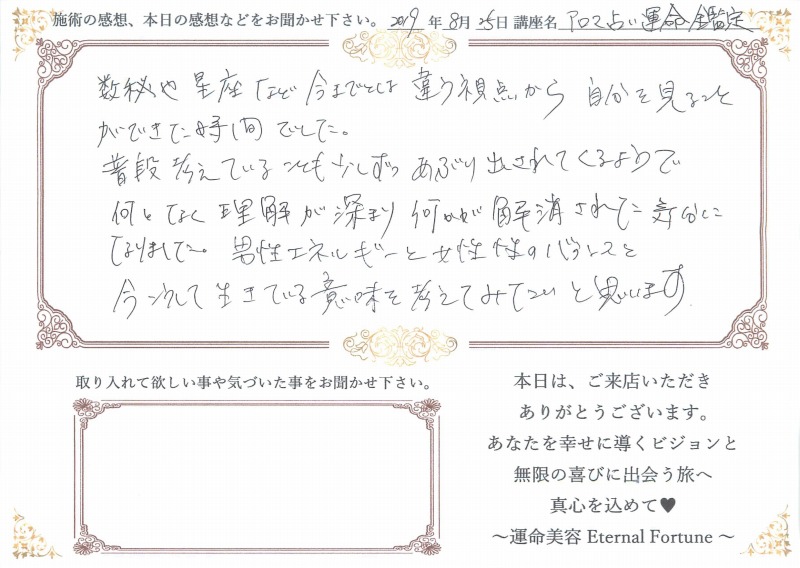 施術の感想、本日の感想などをお聞かせ下さい。2019年8月25日 講座名 アロマ占い運命鑑定
数秘や星座など今までとは違う視点から自分を見ること
ができた時間でした。
普段考えていることも少しずつあぶり出されてくるようで
何となく理解が深まり何かが解消されてた気分に
なりました。男性エネルギーと女性性のバランスと
今こうして生きている意味を考えてみたいと思います
取り入れて欲しい事や気づいた事をお聞かせ下さい。
本日は、ご来店いただき
ありがとうございます。
あなたを幸せに導くビジョンと
無限の喜びに出会う旅へ
真心を込めて♥
〜運命美容 Eternal Fortune 〜